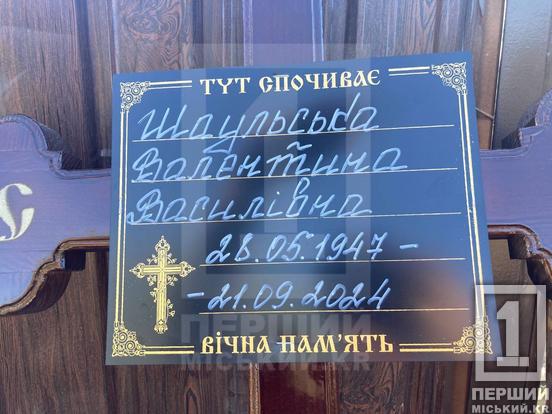 ТУТ СПОЧИВАЄ
Шаульська
Валентина
Василівна
28.05.1947 -
- 21.09.2024
ВІЧНА ПАМ'ЯТЬ
1
ПЕРШИЙ
МІСЬКИЙ.KR
1
ПЕРШИЙ
МІСЬКИЙ.KR